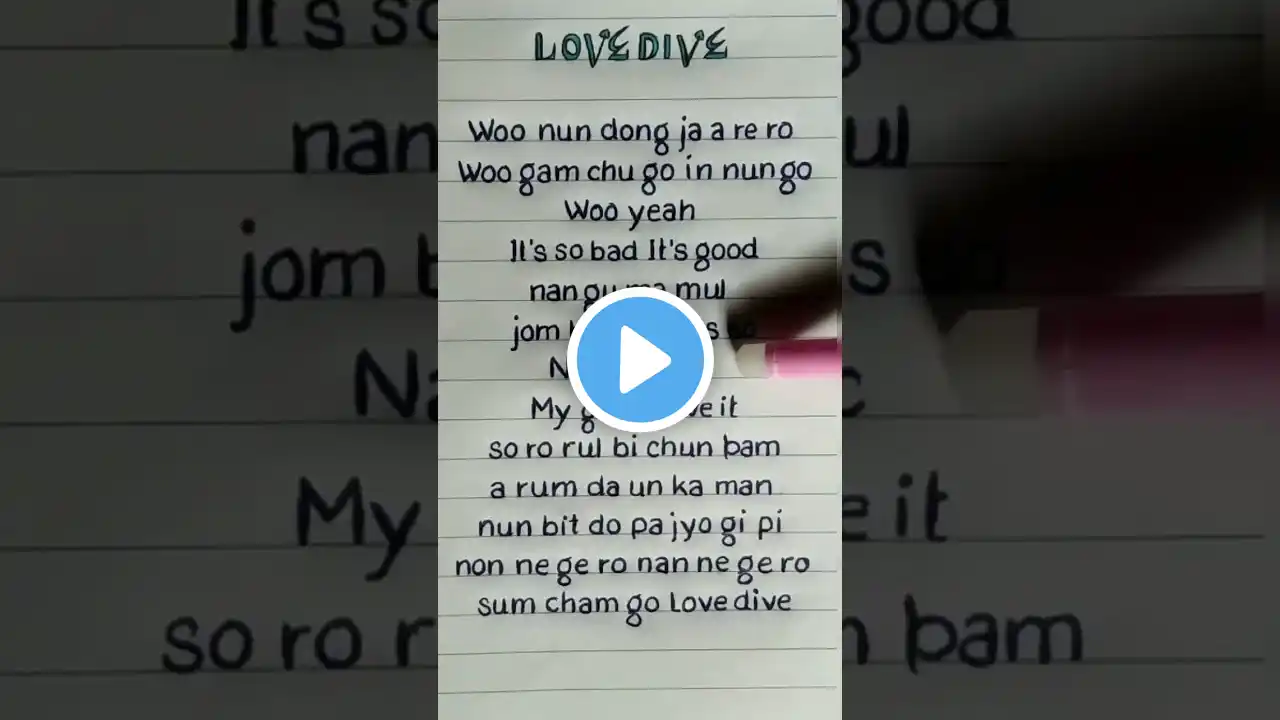 LOVE DIVE
Woo nun dong ja a re ro
Woo gam chu go in nun go
Woo yeah
It's so bad It's good
nan mul
jom
My it
so ro rul bi chun bam
a rum da un ka man
nun bit do pa jyo gi pi
non ne ge ro nan ne ge ro
sum cham go Love dive